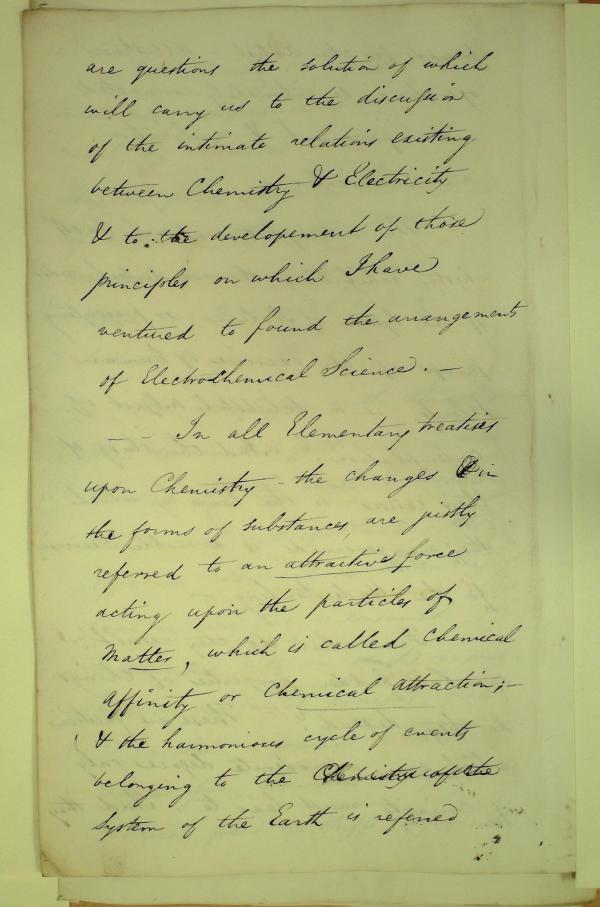 are questions the solution of which
will carry us to the discussion
of the intimate relations existing
between Chemistry & Electricity
& to the developement of those
principles on which I have
ventured to found the arrangements
of Electrochemical Science. —
— — In all Elementary treatises
upon Chemistry - the changes in
the forms of substances are justly
referred to an attractive force
acting upon the particles of
Matter, which is called Chemical
affinity or Chemical attraction; —
& the harmonious cycle of events
belonging to the Chemistry of the
System of the Earth is referred